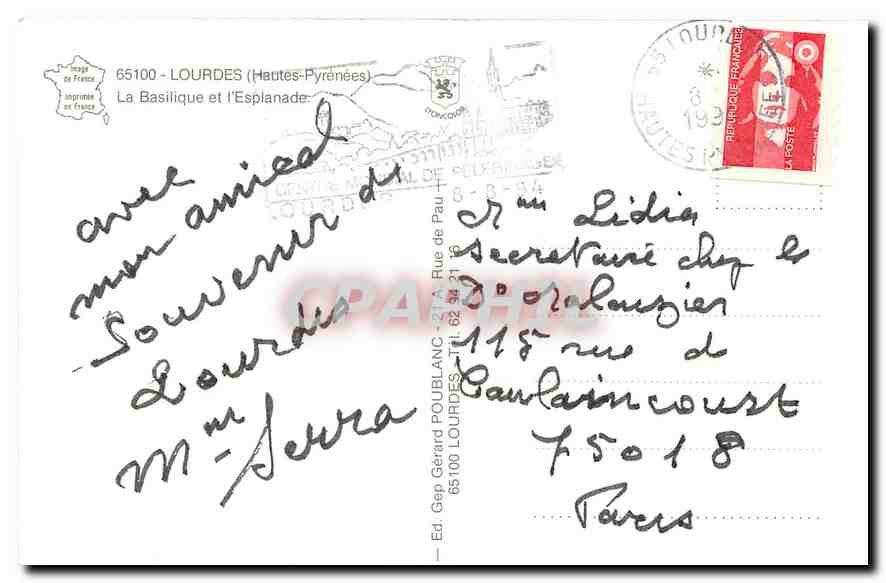 Image
de France
imprimée
en France
65100 - LOURDES (Hautes-Pyrénées)
La Basilique et l'Esplanade.
LYONCOLOR
CENTRE DE PELERINAGE
LOURDES 8-8-94
65 LOURDES
8
199
HAUTES
REPUBLIQUE FRANÇAISE
LA POSTE
avec
mon amical
Souvenir de
Lourdes
Mme Serra
Ed. Gep Gérard POUBLANC - 21 A, Rue de Pau
65100 LOURDES - Tél. 62 94 21 16
CPAPHIL
Mme Lidia
secretaire chez le
Dº
115 rue de
Caulaincourt
75018
Paris